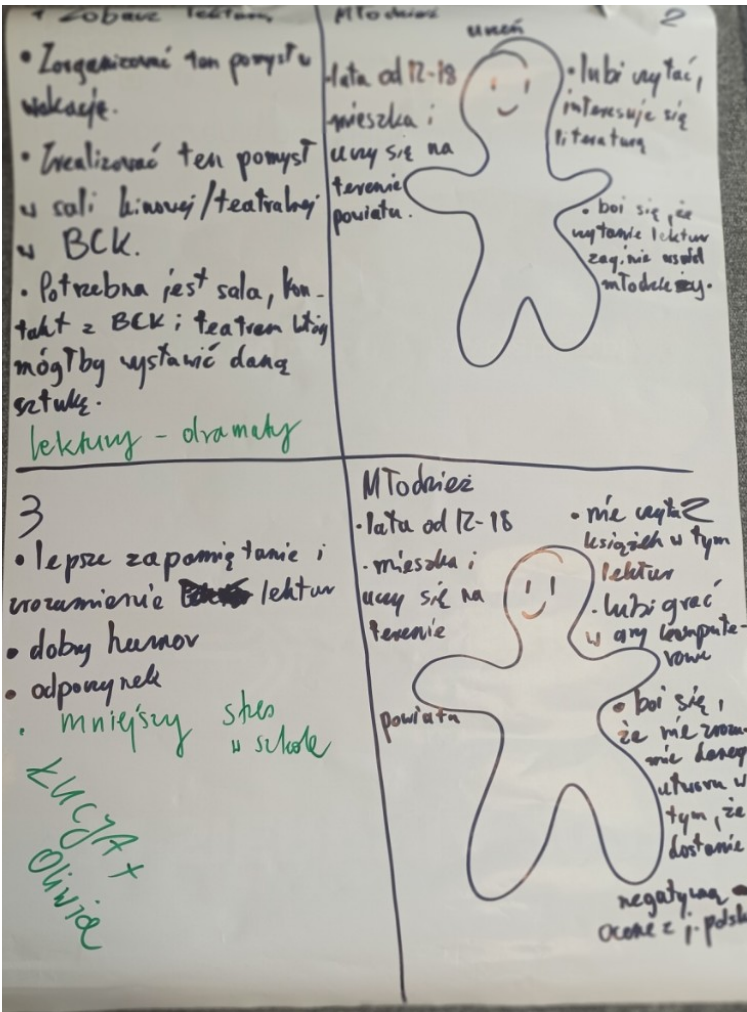 Zobacz lekturę
• Zorganizować ten pomysł w
wakacje.
• Zrealizować ten pomysł
w sali kinowej/teatralnej
w BCK.
• Potrzebna jest sala, kon-
takt z BCK i teatrem któy
mógłby wystawić daną
sztukę.
lektury - dramaty
Młodzież
2
uczeń
- lata od 12-18
mieszka i
uczy się na
terenie
powiatu.
• lubi czytać,
interesuje się
literaturą
• boi się, że
czytanie lektur
zaginie wśród
młodzieży.
3
• lepsze zapamiętanie i
zrozumienie lektur
• doby humor
• odpoczynek
• mniejszy stres
w szkole
ŁUCJA +
Oliwia
Młodzież
• lata od 12-18
• mieszka i
uczy się na
terenie
powiatu
2
• nie czyta
książek w tym
lektur
• lubi grać
w gry kompute-
rowe
• boi się,
że nie zrozu-
mie danego
utworu w
tym, że
dostanie
negatywną
ocenę z j. polsk